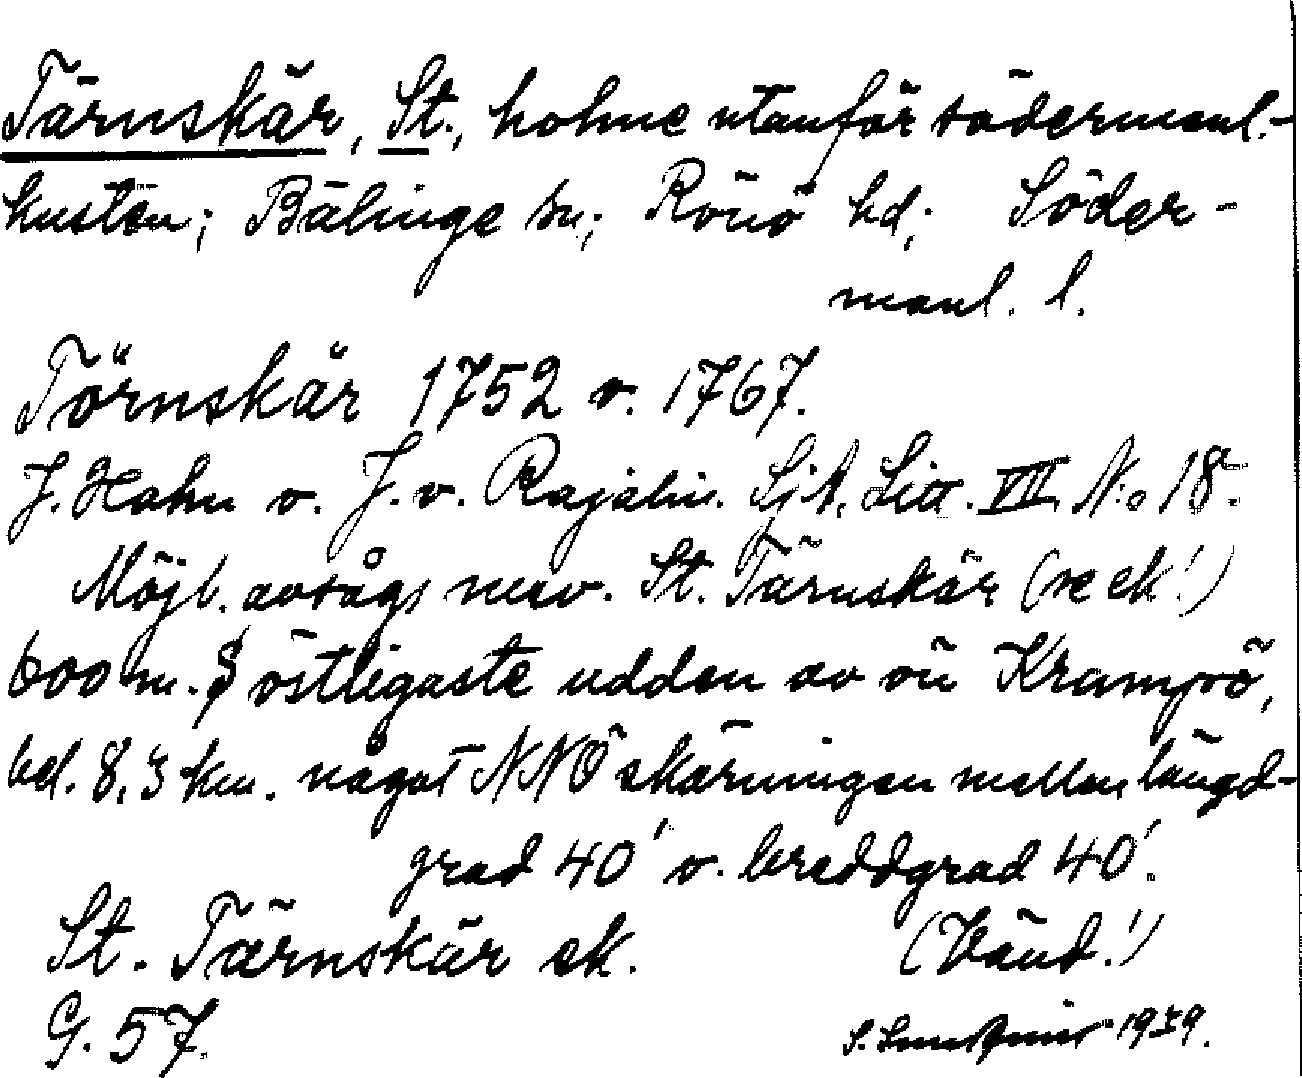 Tärnskär, St., holme utanför södermanl.-
kusten; Bälinge sn; Rönö hd; Söder-
manl. l.
Törnskär 1752 o. 1767.
J. Hahn o. J. v. Rajalin. SjA. Litt. VII. N:o 18.
Möjl. avsågs nuv. St. Tärnskär (se ek!)
600 m. S östligaste udden av ön Krampö,
bel. 8,3 km. något NNÖ skärningen mellan längd-
grad 40' o. breddgrad 40'.
St. Tärnskär ek. (Vänd!)
G. 57. S. 19